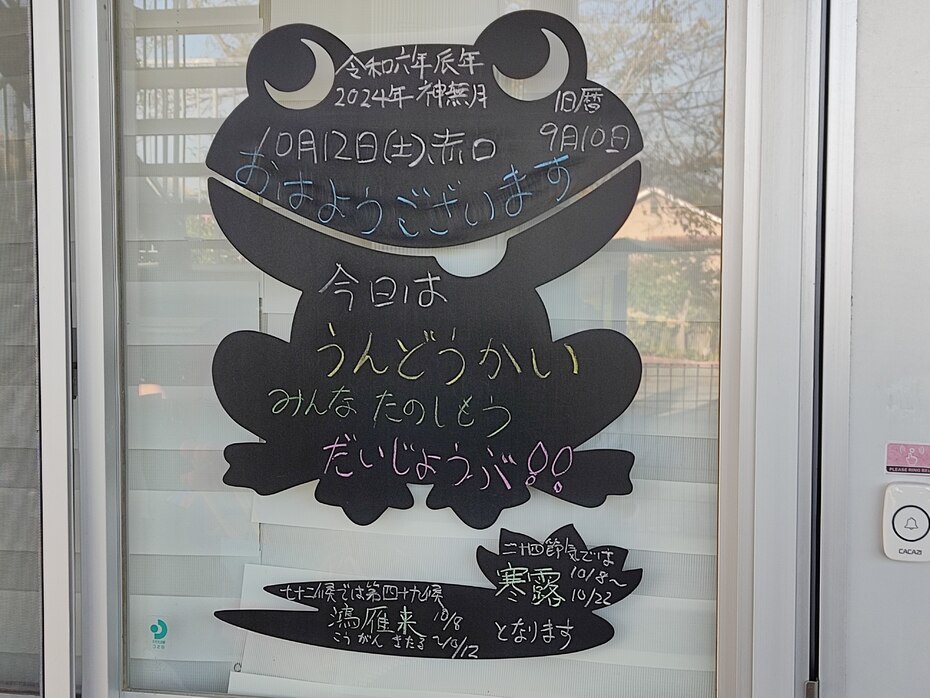 令和六年辰年
2024年 神無月
旧暦
9月10日
10月12日(土)、赤口
おはようございます
今日は
うんどうかい
みんな たのしもう
だいじょうぶ!!
二十四節気では
寒露 10/8～
10/22
となります
七十二候では第四十九候
鴻雁来 10/8
こうがん きたる ～10/12
PLEASE RING BELL
CACAZI